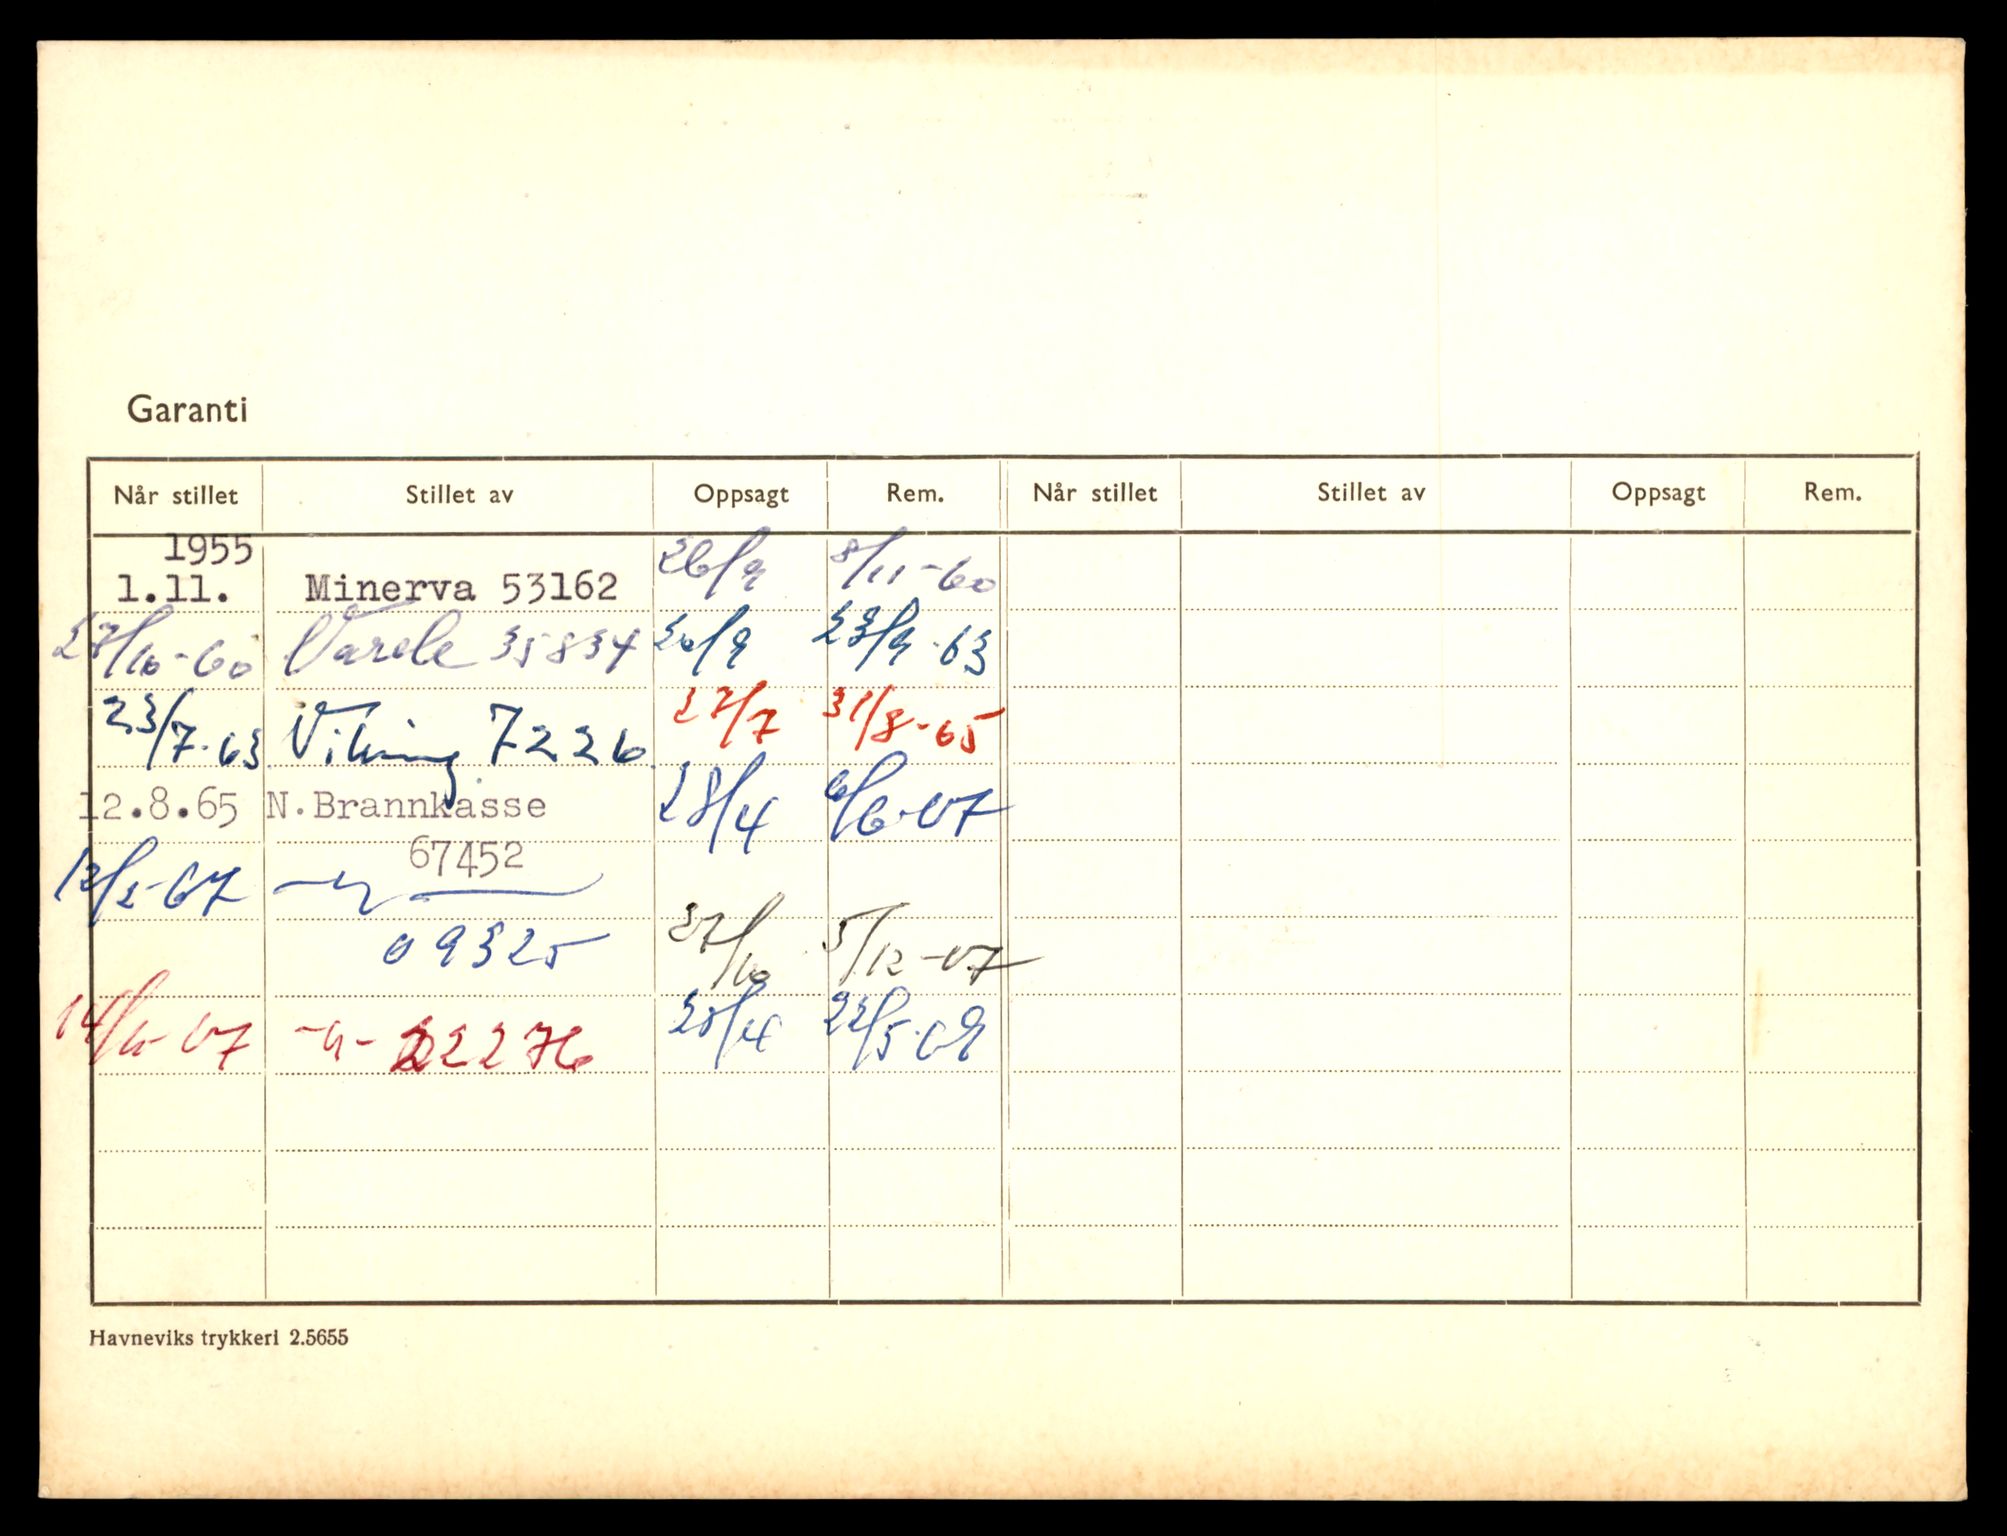 Garanti
Når stillet Stillet av Oppsagt Rem. Når stillet Stillet av Oppsagt Rem.
1955
1.11. Minerva 53162 26/9 8/11-60
27/10-60 Varde 35834 20/9 23/9-63
23/7-63 Viking 7226 27/7 31/8-65
12.8.65 N.Brannkasse 28/4 6/6-67
67452
12/5-67 -"-
09325 27/10 5/12-67
14/11-67 -"- 22276 28/4 22/5-69
Havneviks trykkeri 2.5655